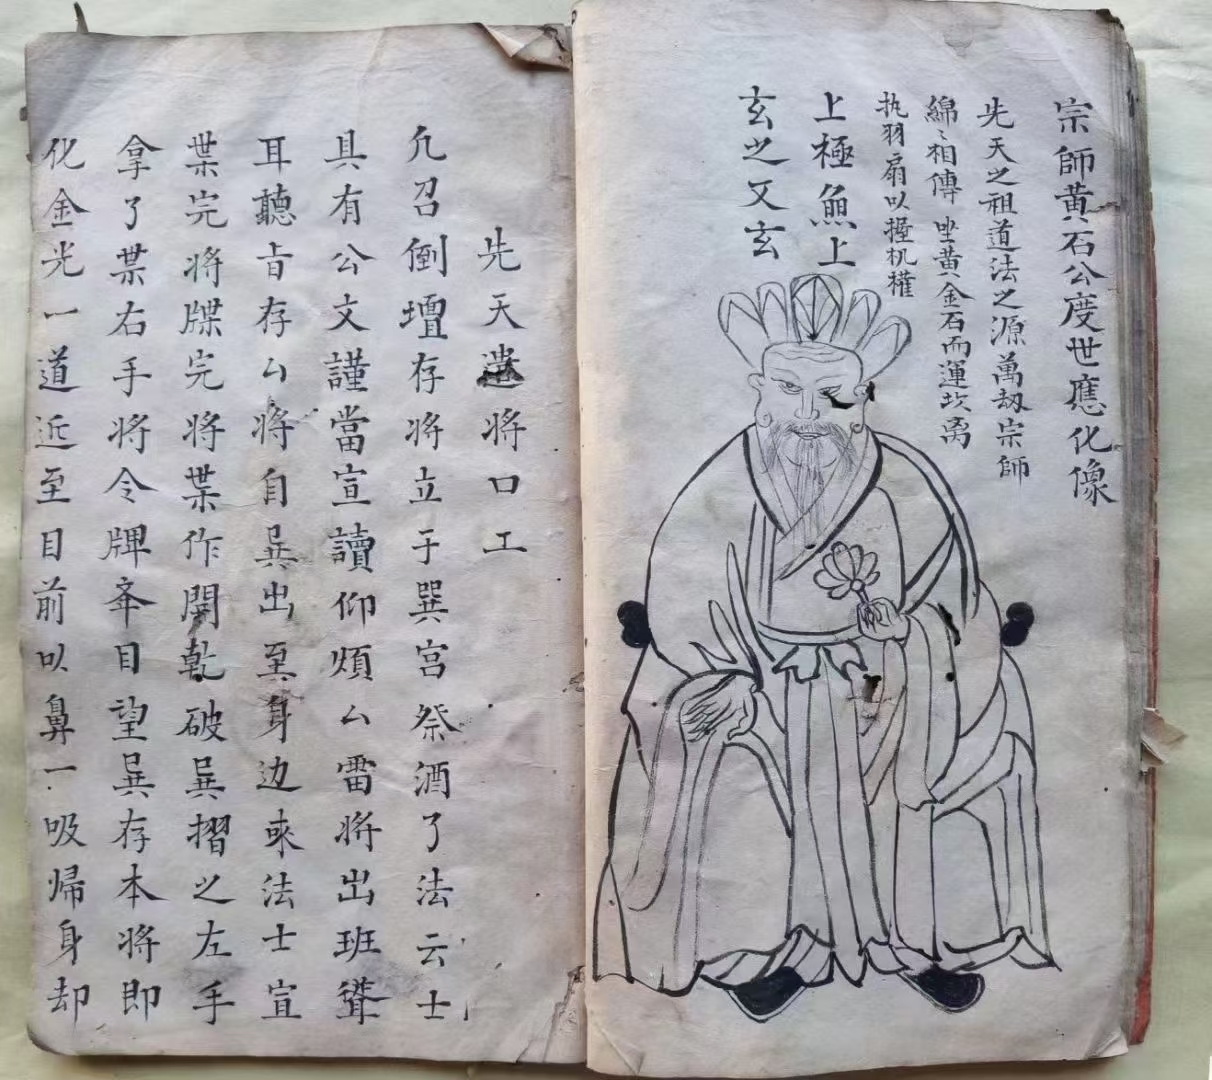 宗師黄石公度世應化像
先天之祖道法之源萬劫宗師
綿〻相傳坐黄金石而運坎离
执羽扇以握机權
上極無上
玄之又玄
先天遣将口工
凡召倒壇存将立于巽宫祭酒了法云士
具有公文謹當宣讀仰煩厶雷将出班聳
耳聽㫖存厶将自巽出至身边来法士宣
枼完将牒完将枼作開乾破巽摺之左手
拿了枼右手将令牌奉目望巽存本将即
化金光一道近至目前以鼻一吸归身却